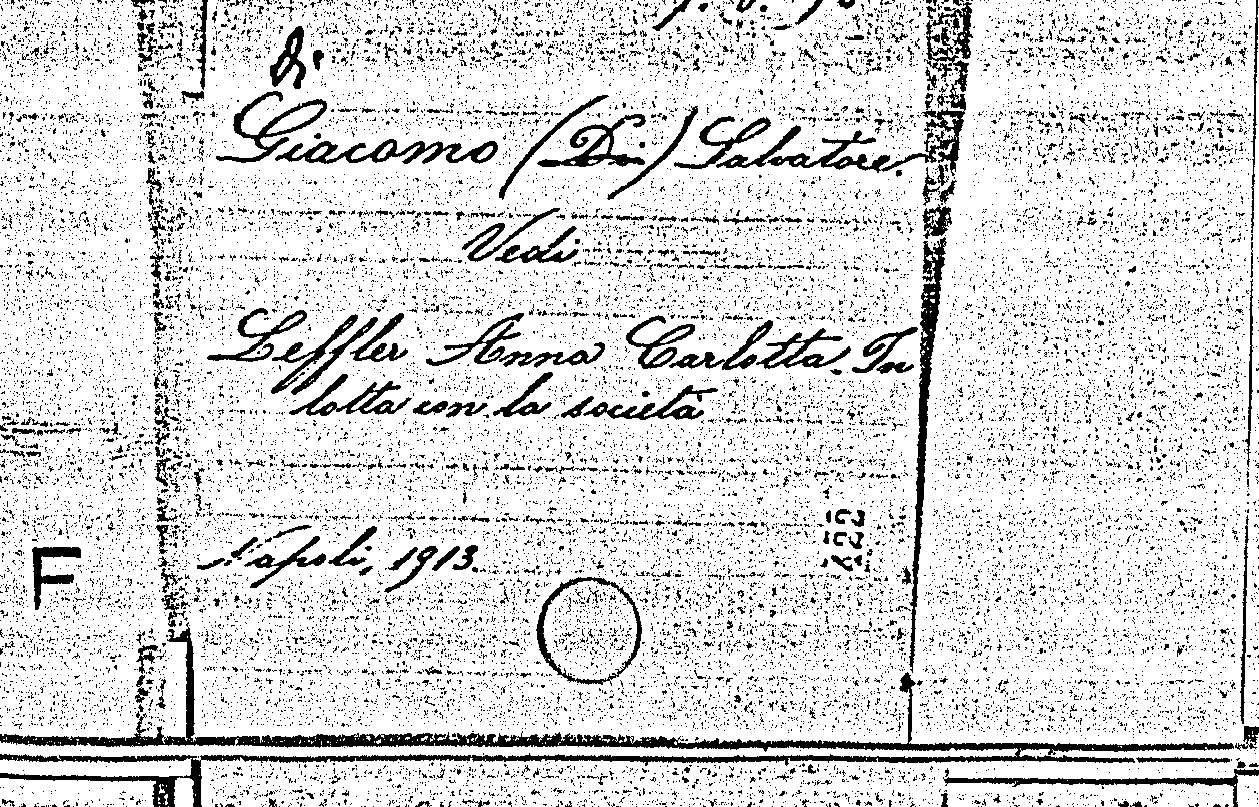 Di
Giacomo (Di) Salvatore.
Vedi
Leffler Anna Carlotta. In
lotta con la società
Napoli, 1913.
F